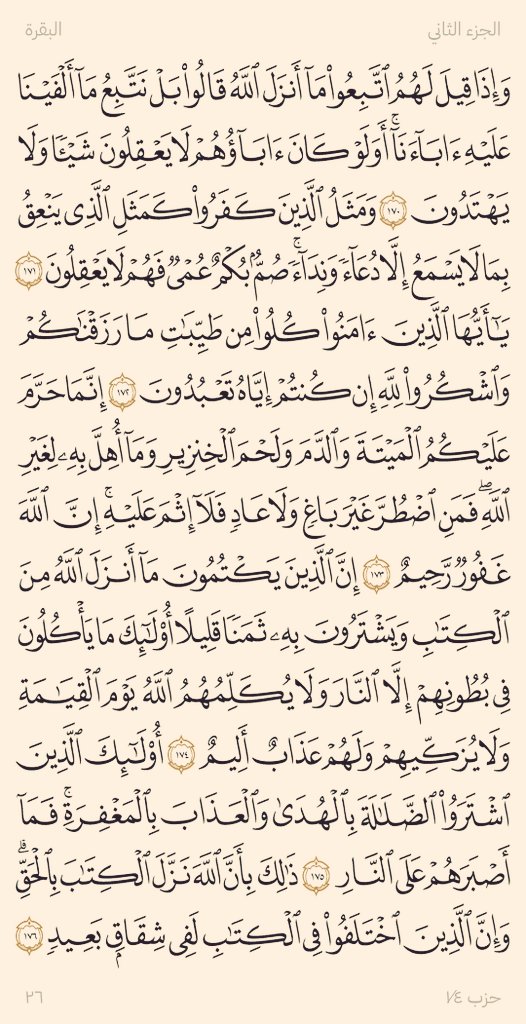 الجزء الثاني
البقرة
وَإِذَا قِيلَ لَهُمُ ٱتَّبِعُوا۟ مَآ أَنزَلَ ٱللَّهُ قَالُوا۟ بَلْ نَتَّبِعُ مَآ أَلْفَيْنَا
عَلَيْهِ ءَابَآءَنَآ ۚ أَوَلَوْ كَانَ ءَابَآؤُهُمْ لَا يَعْقِلُونَ شَيْـًٔا وَلَا
يَهْتَدُونَ ١٧٠ وَمَثَلُ ٱلَّذِينَ كَفَرُوا۟ كَمَثَلِ ٱلَّذِى يَنْعِقُ
بِمَا لَا يَسْمَعُ إِلَّا دُعَآءً وَنِدَآءً ۚ صُمٌّۢ بُكْمٌ عُمْىٌ فَهُمْ لَا يَعْقِلُونَ ١٧١
يَـٰٓأَيُّهَا ٱلَّذِينَ ءَامَنُوا۟ كُلُوا۟ مِن طَيِّبَـٰتِ مَا رَزَقْنَـٰكُمْ
وَٱشْكُرُوا۟ لِلَّهِ إِن كُنتُمْ إِيَّاهُ تَعْبُدُونَ ١٧٢ إِنَّمَا حَرَّمَ
عَلَيْكُمُ ٱلْمَيْتَةَ وَٱلدَّمَ وَلَحْمَ ٱلْخِنزِيرِ وَمَآ أُهِلَّ بِهِۦ لِغَيْرِ
ٱللَّهِ ۖ فَمَنِ ٱضْطُرَّ غَيْرَ بَاغٍ وَلَا عَادٍ فَلَآ إِثْمَ عَلَيْهِ ۚ إِنَّ ٱللَّهَ
غَفُورٌ رَّحِيمٌ ١٧٣ إِنَّ ٱلَّذِينَ يَكْتُمُونَ مَآ أَنزَلَ ٱللَّهُ مِنَ
ٱلْكِتَـٰبِ وَيَشْتَرُونَ بِهِۦ ثَمَنًا قَلِيلًا أُو۟لَـٰٓئِكَ مَا يَأْكُلُونَ
فِى بُطُونِهِمْ إِلَّا ٱلنَّارَ وَلَا يُكَلِّمُهُمُ ٱللَّهُ يَوْمَ ٱلْقِيَـٰمَةِ
وَلَا يُزَكِّيهِمْ وَلَهُمْ عَذَابٌ أَلِيمٌ ١٧٤ أُو۟لَـٰٓئِكَ ٱلَّذِينَ
ٱشْتَرَوُا۟ ٱلضَّلَـٰلَةَ بِٱلْهُدَىٰ وَٱلْعَذَابَ بِٱلْمَغْفِرَةِ ۚ فَمَآ
أَصْبَرَهُمْ عَلَى ٱلنَّارِ ١٧٥ ذَٰلِكَ بِأَنَّ ٱللَّهَ نَزَّلَ ٱلْكِتَـٰبَ بِٱلْحَقِّ ۗ
وَإِنَّ ٱلَّذِينَ ٱخْتَلَفُوا۟ فِى ٱلْكِتَـٰبِ لَفِى شِقَاقٍۭ بَعِيدٍ ١٧٦
حزب ٧٤
٢٦